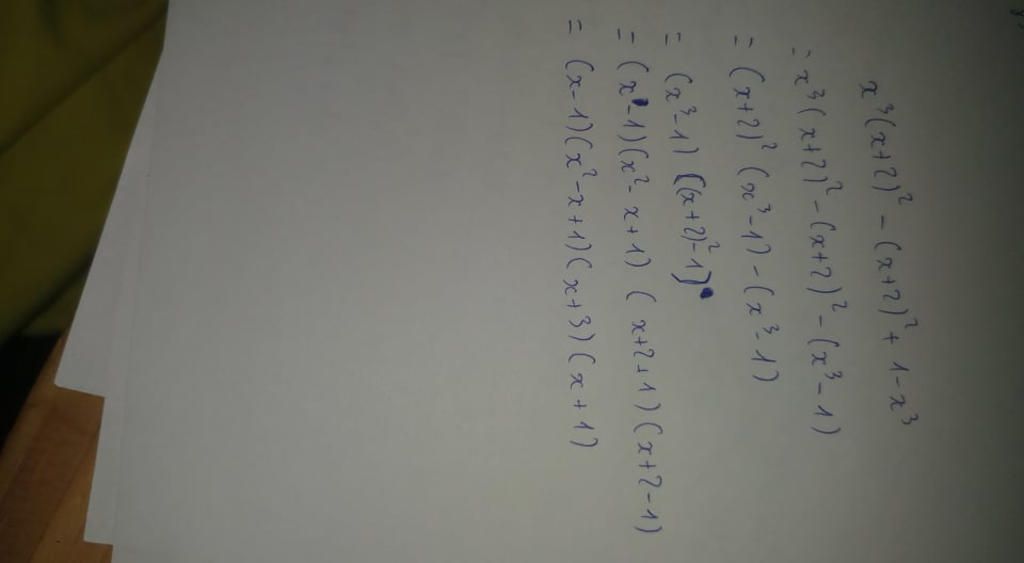 x³(x+2)² - (x+2)² + 1 - x³
= x³(x+2)² - (x+2)² - (x³-1)
= (x+2)² (x³-1) - (x³-1)
= (x³-1) ((x+2)²-1)
= (x-1)(x²-x+1) (x+2+1)(x+2-1)
= (x-1)(x²-x+1)(x+3)(x+1)